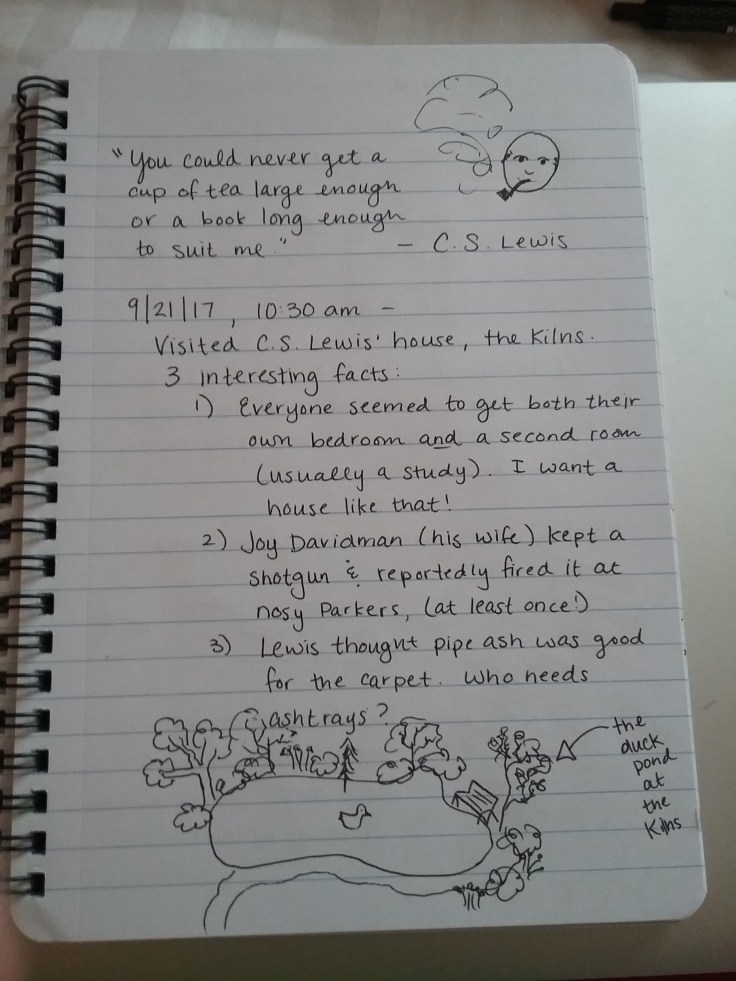 "You could never get a
cup of tea large enough
or a book long enough
to suit me."
– C.S. Lewis
9/21/17, 10:30 am –
Visited C.S. Lewis' house, the Kilns.
3 interesting facts:
1) Everyone seemed to get both their
own bedroom and a second room
(usually a study). I want a
house like that!
2) Joy Davidman (his wife) kept a
shotgun & reportedly fired it at
nosy Parkers, (at least once!)
3) Lewis thought pipe ash was good
for the carpet. Who needs
ashtrays?
the
duck
pond
at
the
Kilns